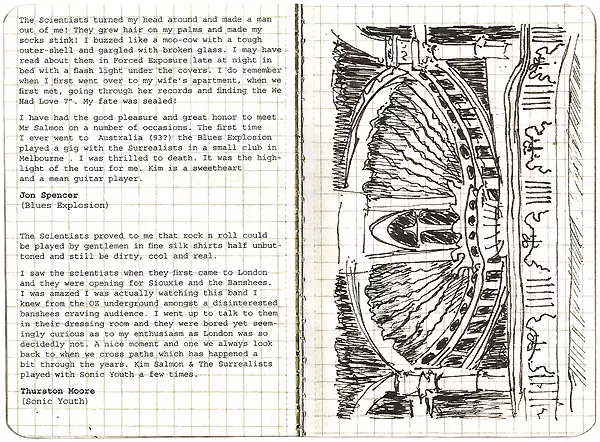 The Scientists turned my head around and made a man
out of me! They grew hair on my palms and made my
socks stink! I buzzed like a moo-cow with a tough
outer-shell and gargled with broken glass. I may have
read about them in Forced Exposure late at night in
bed with a flash light under the covers. I do remember
when I first went over to my wife's apartment, when we
first met, going through her records and finding the We
Had Love 7". My fate was sealed!
I have had the good pleasure and great honor to meet
Mr Salmon on a number of occasions. The first time
I ever went to Australia (93?) the Blues Explosion
played a gig with the Surrealists in a small club in
Melbourne . I was thrilled to death. It was the high-
light of the tour for me. Kim is a sweetheart
and a mean guitar player.
Jon Spencer
(Blues Explosion)
The Scientists proved to me that rock n roll could
be played by gentlemen in fine silk shirts half unbut-
toned and still be dirty, cool and real.
I saw the scientists when they first came to London
and they were opening for Siouxie and the Banshees.
I was amazed I was actually watching this band I
knew from the OZ underground amongst a disinterested
banshees craving audience. I went up to talk to them
in their dressing room and they were bored yet seem-
ingly curious as to my enthusiasm as London was so
decidedly not. A nice moment and one we always look
back to when we cross paths which has happened a
bit through the years. Kim Salmon & The Surrealists
played with Sonic Youth a few times.
Thurston Moore
(Sonic Youth)